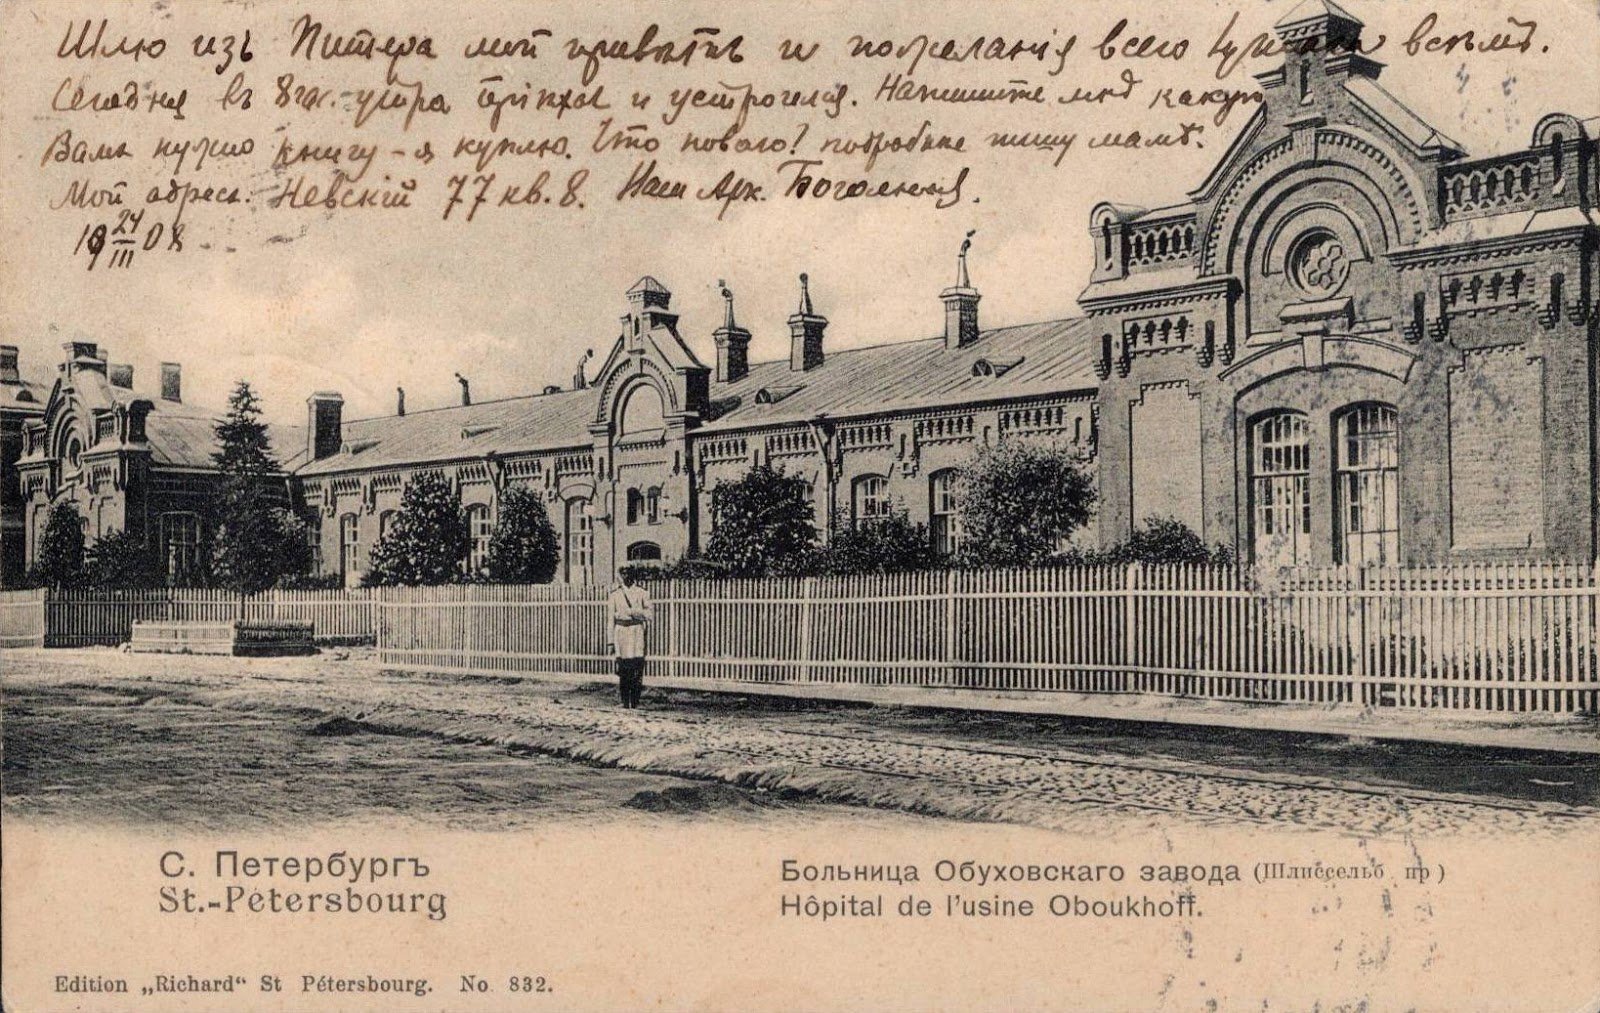 Шлю изъ Питера мой привѣтъ и пожеланія всего всѣмъ.
Сегодня въ 8 час. утра пріѣхал и устроился. Напишите мнѣ какую
Вамъ нужно книгу - я куплю. Что новаго? подробнѣе пишу мамѣ.
Мой адресъ. Невскій 77 кв. 8. Арк.
19 24/III 08
С. Петербургъ
St.-Pétersbourg
Больница Обуховскаго завода (Шлиссельб. пр)
Hôpital de l'usine Oboukhoff.
Edition „Richard“ St Pétersbourg. No 832.